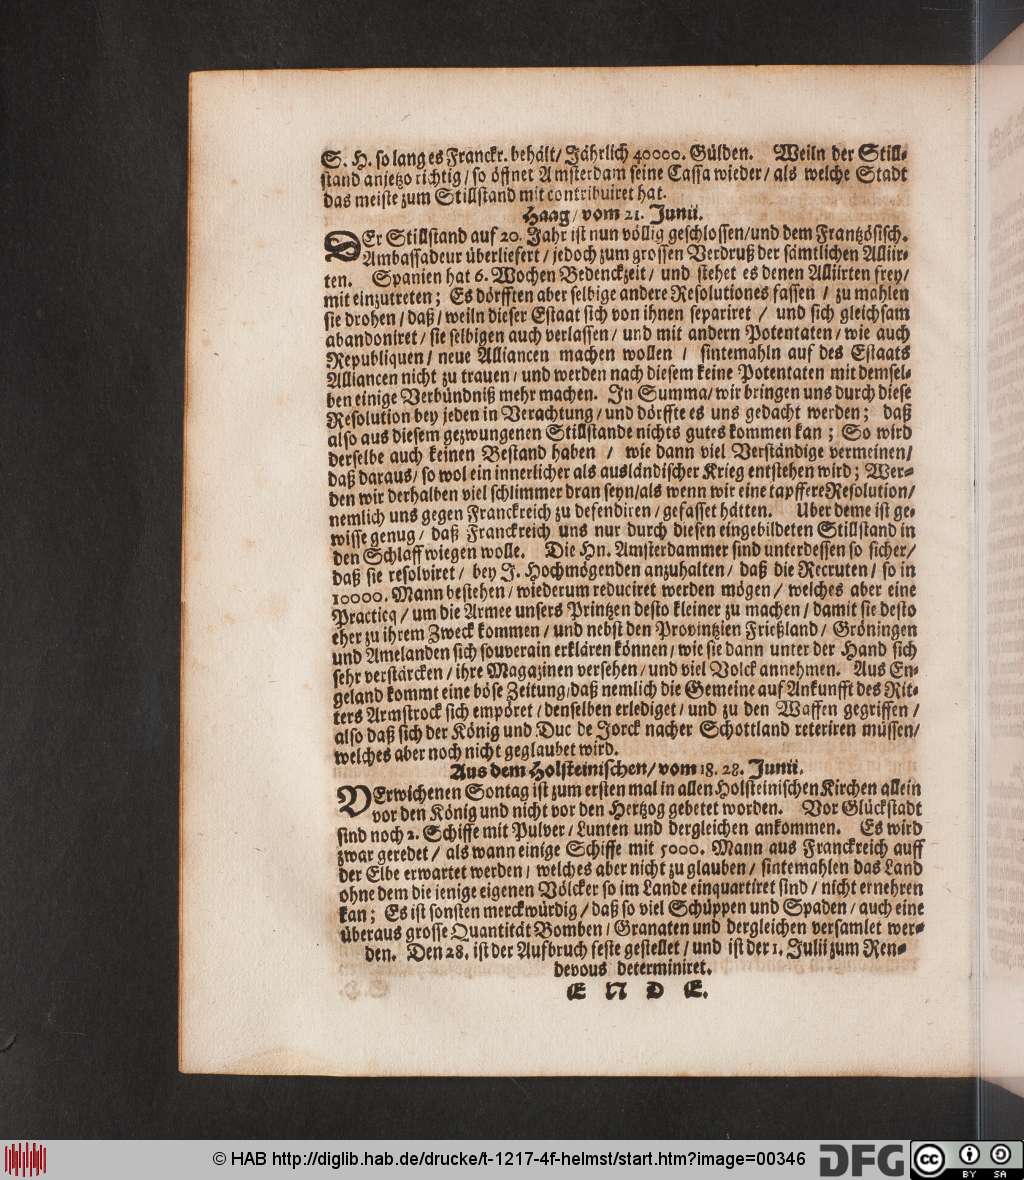 S. H. so lang es Franckr. behält/ Jährlich 40000. Gülden. Weiln der Still-
stand anjetzo richtig/ so öffnet Amsterdam seine Cassa wieder/ als welche Stadt
das meiste zum Stillstand mit contribuiret hat.
Haag/ vom 21. Junii.
DEr Stillstand auf 20. Jahr ist nun völlig geschlossen/und dem Frantzösisch.
Ambassadeur überliefert/ jedoch zum grossen Verdruß der sämtlichen Alliir-
ten. Spanien hat 6. Wochen Bedenckzeit/ und stehet es denen Alliirten frey/
mit einzutreten; Es dörfften aber selbige andere Resolutiones fassen / zu mahlen
sie drohen/ daß/ weiln dieser Estaat sich von ihnen separiret / und sich gleichsam
abandoniret/ sie selbigen auch verlassen/ und mit andern Potentaten/ wie auch
Republiquen/ neue Alliancen machen wollen / sintemahln auf des Estaats
Alliancen nicht zu trauen/ und werden nach diesem keine Potentaten mit demsel-
ben einige Verbündniß mehr machen. In Summa/ wir bringen uns durch diese
Resolution bey jeden in Verachtung/ und dörffte es uns gedacht werden; daß
also aus diesem gezwungenen Stillstande nichts gutes kommen kan; So wird
derselbe auch keinen Bestand haben / wie dann viel Verständige vermeinen/
daß daraus/ so wol ein innerlicher als ausländischer Krieg entstehen wird; Wer-
den wir derhalben viel schlimmer dran seyn/als wenn wir eine tapffere Resolution/
nemlich uns gegen Franckreich zu defendiren/ gefasset hätten. Uber deme ist ge-
wisse genug/ daß Franckreich uns nur durch diesen eingebildeten Stillstand in
den Schlaff wiegen wolle. Die Hn. Amsterdammer sind unterdessen so sicher/
daß sie resolviret/ bey J. Hochmögenden anzuhalten/ daß die Recruten/ so in
10000. Mann bestehen/ wiederum reduciret werden mögen/ welches aber eine
Practicq/ um die Armee unsers Printzen desto kleiner zu machen/ damit sie desto
eher zu ihrem Zweck kommen/ und nebst den Provintzien Frießland/ Gröningen
und Amelanden sich souverain erklären können/ wie sie dann unter der Hand sich
sehr verstärcken/ ihre Magazinen versehen/ und viel Volck annehmen. Aus En-
geland kommt eine böse Zeitung/daß nemlich die Gemeine auf Ankunfft des Rit-
ters Armstrock sich empöret/ denselben erlediget/ und zu den Waffen gegriffen/
also daß sich der König und Duc de Jorck nacher Schottland reteriren müssen/
welches aber noch nicht geglaubet wird.
Aus dem Holsteinischen/ vom 18. 28. Junii.
VErwichenen Sontag ist zum ersten mal in allen Holsteinischen Kirchen allein
vor den König und nicht vor den Hertzog gebetet worden. Vor Glückstadt
sind noch 2. Schiffe mit Pulver/ Lunten und dergleichen ankommen. Es wird
zwar geredet/ als wann einige Schiffe mit 5000. Mann aus Franckreich auff
der Elbe erwartet werden/ welches aber nicht zu glauben/ sintemahlen das Land
ohne dem die jenige eigenen Völcker so im Lande einquartiret sind/ nicht ernehren
kan; Es ist sonsten merckwürdig/ daß so viel Schüppen und Spaden/ auch eine
überaus grosse Quantität Bomben/ Granaten und dergleichen versamlet wer-
den. Den 28. ist der Aufbruch feste gestellet/ und ist der 1. Julii zum Ren-
devous determiniret.
E N D E.
© HAB http://diglib.hab.de/drucke/t-1217-4f-helmst/start.htm?image=00346
DFG
cc
BY SA